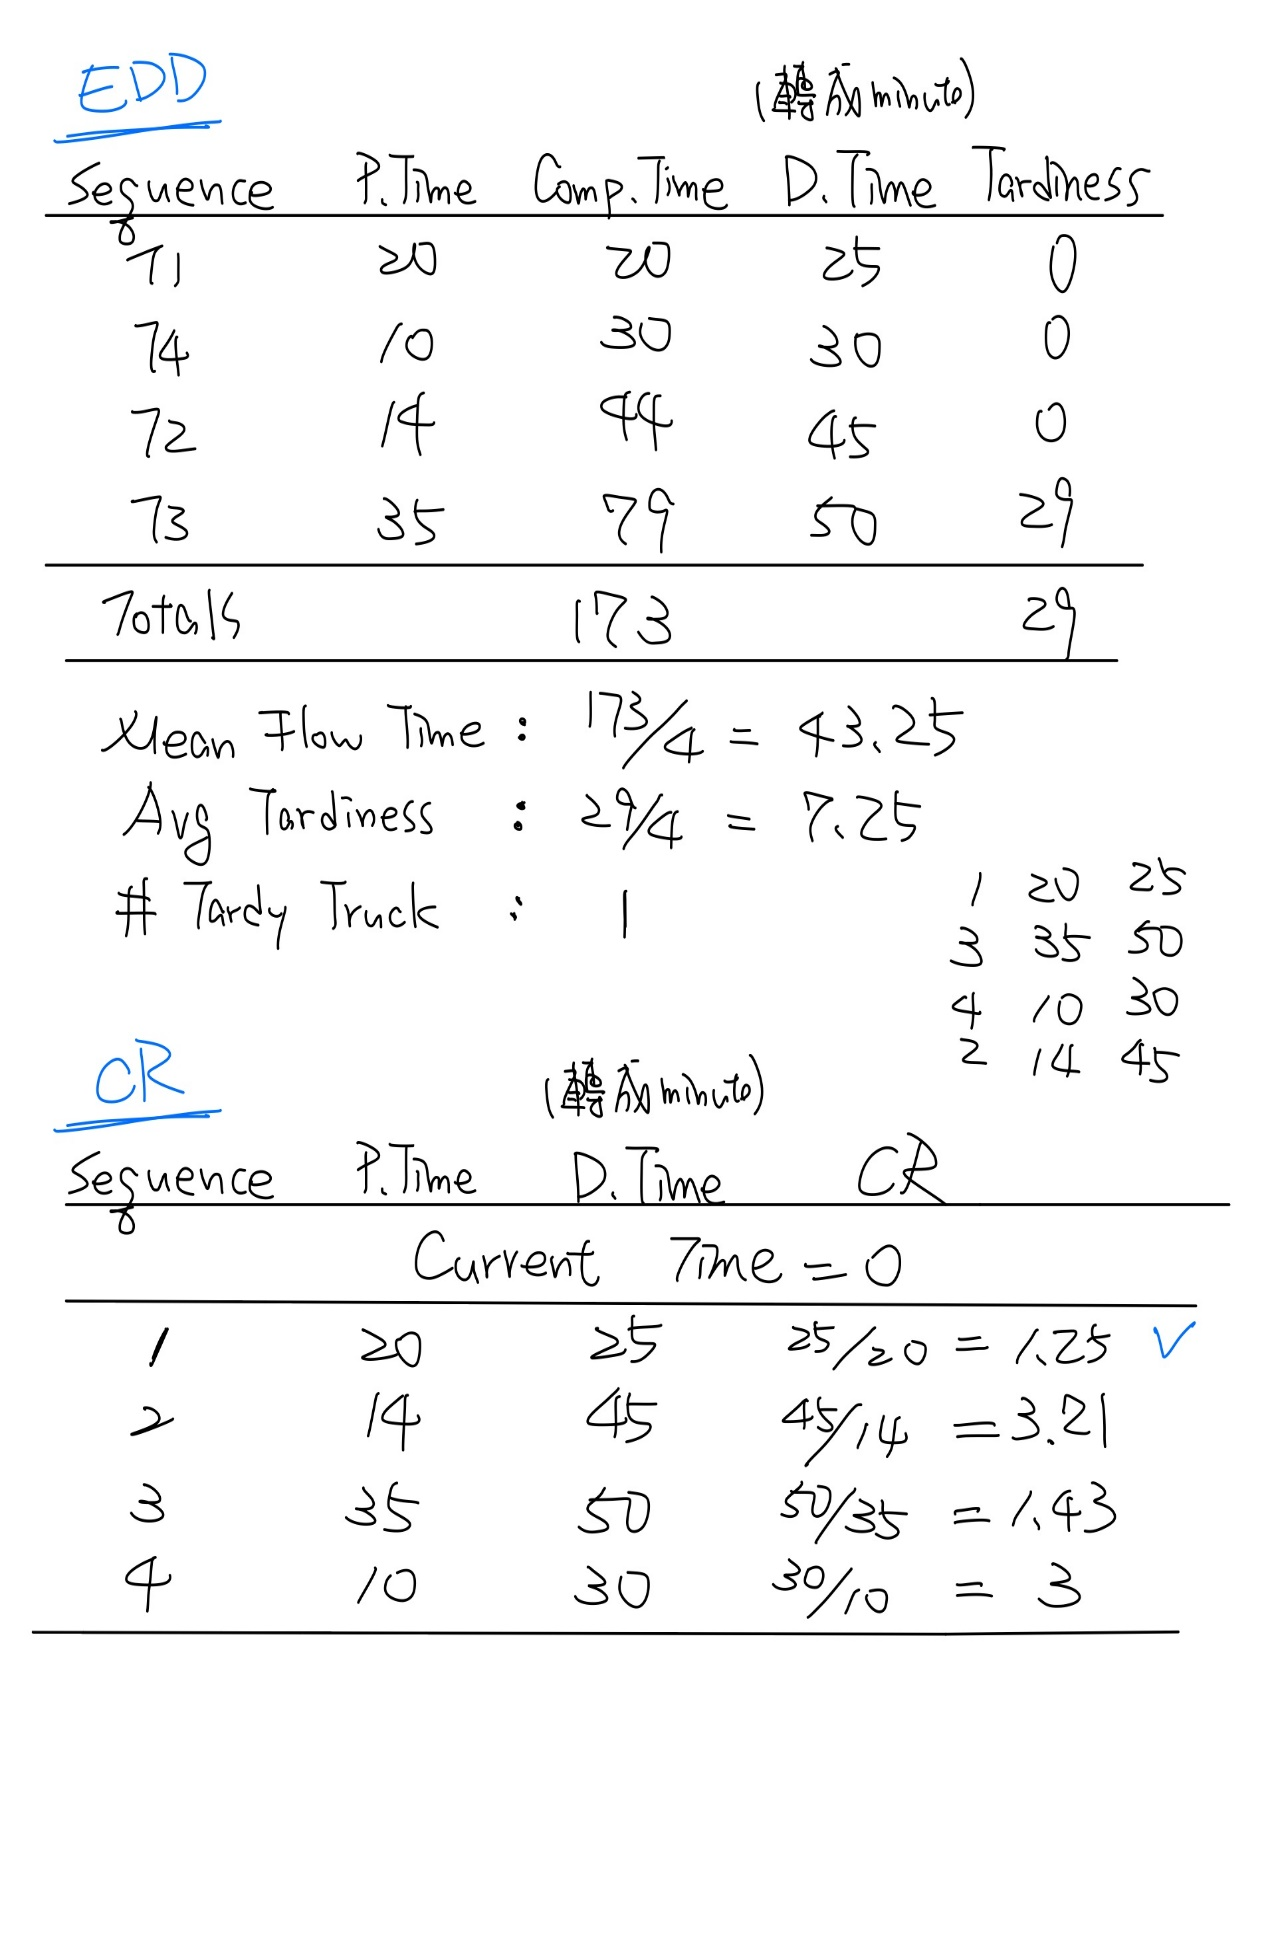 EDD
(轉成minute)
Sequence P.Time Comp.Time D.Time Tardiness
T1 20 20 25 0
T4 10 30 30 0
T2 14 44 45 0
T3 35 79 50 29
Totals 173 29
Mean Flow Time : 173/4 = 43.25
Avg Tardiness : 29/4 = 7.25
# Tardy Truck : 1
1 20 25
3 35 50
4 10 30
2 14 45
CR
(轉成minute)
Sequence P.Time D.Time CR
Current Time = 0
1 20 25 25/20 = 1.25 ✓
2 14 45 45/14 = 3.21
3 35 50 50/35 = 1.43
4 10 30 30/10 = 3